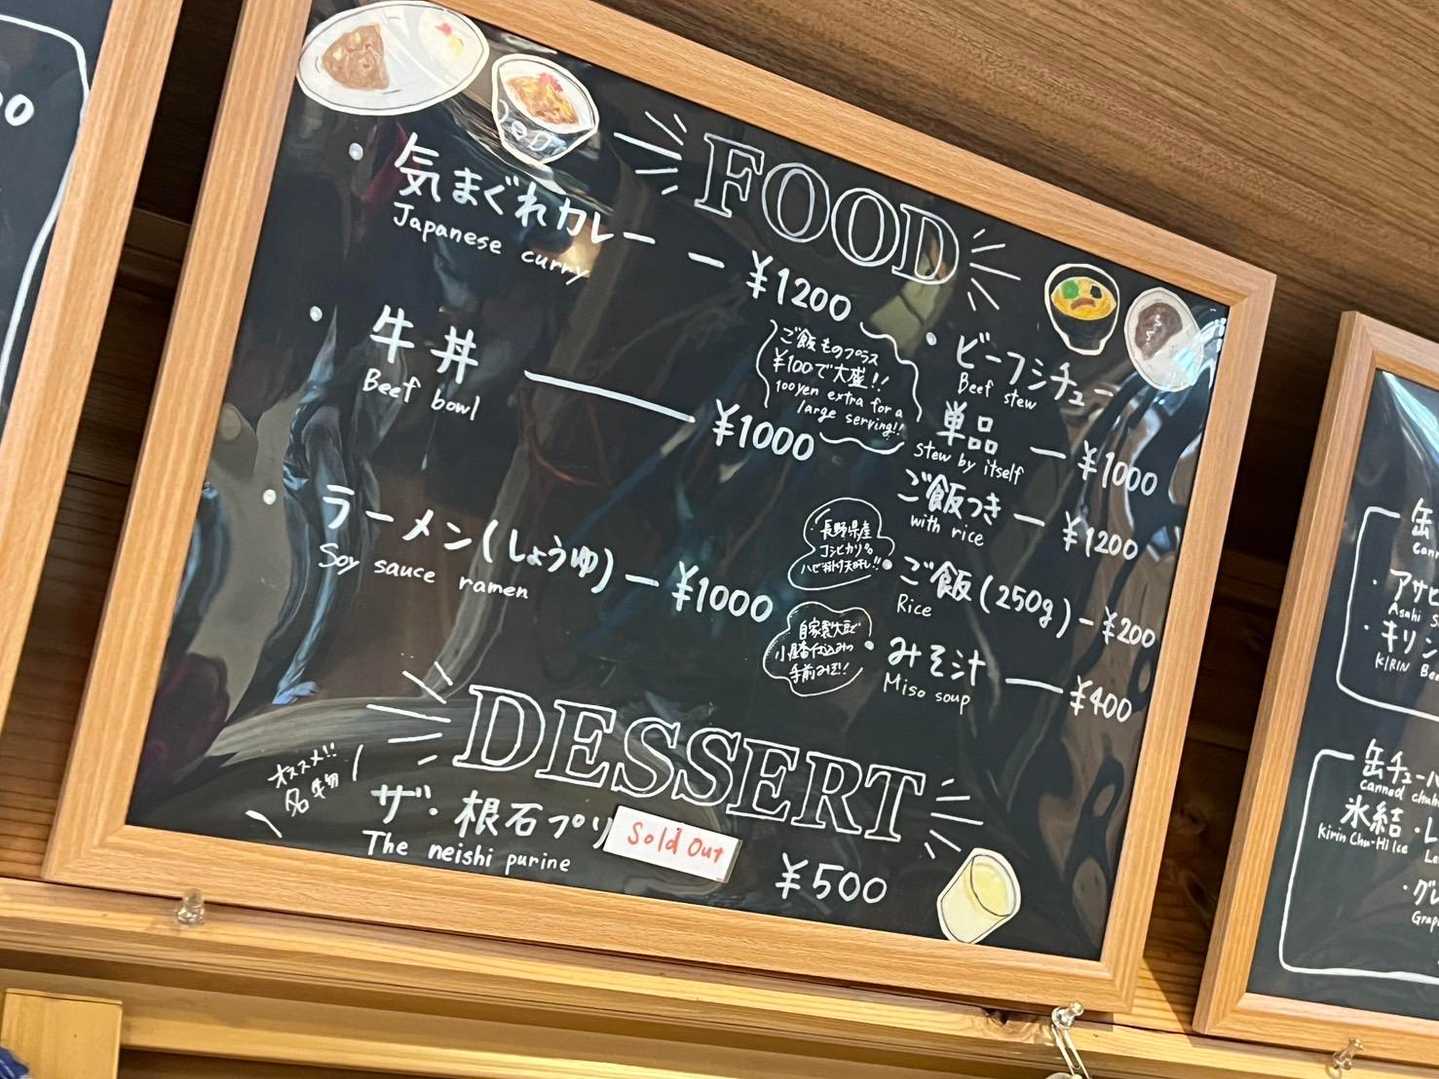 FOOD
気まぐれカレー — ¥1200
Japanese curry
牛丼 — ¥1000
Beef bowl
ラーメン(しょうゆ) — ¥1000
Soy sauce ramen
ご飯ものプラス
¥100で大盛!!
100yen extra for a
large serving!!
・ビーフシチュー
Beef stew
単品 — ¥1000
stew by itself
ご飯つき — ¥1200
with rice
長野県産
コシヒカリ
・ご飯(250g) - ¥200
Rice
手前みそ!
・みそ汁 — ¥400
Miso soup
DESSERT
オススメ!!
名物
ザ・根石プリ
Sold Out
¥500
The neishi purine
缶
・アサヒ
Asahi S
・キリン
KIRIN Bee
缶チューハ
canned chuh
氷結・レ
Kirin Chu-Hi Ice
Le
・グレ
Grap